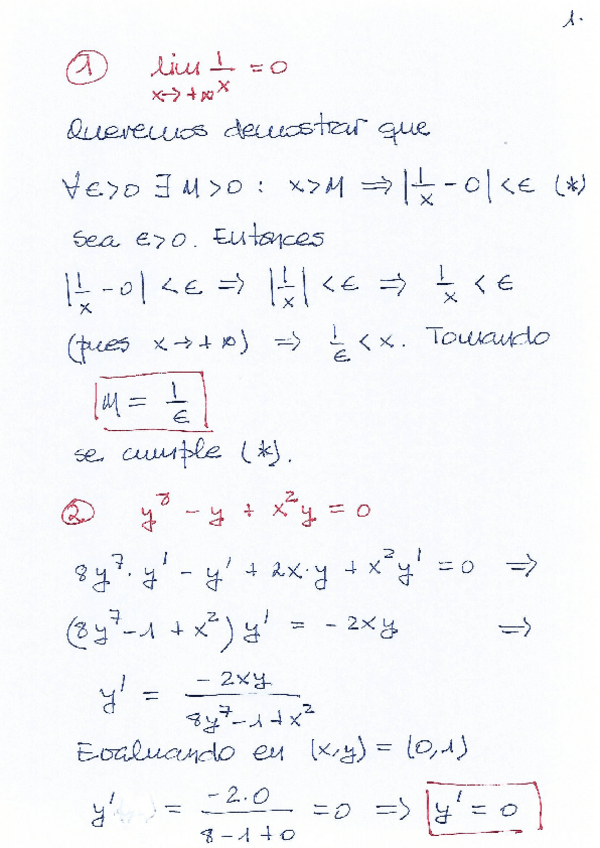 1.
① lim 1/x = 0
x→+∞
Queremos demostrar que
∀ε>0 ∃M>0 : x>M ⇒ |1/x - 0| < ε (*)
sea ε>0. Entonces
|1/x - 0| < ε ⇒ |1/x| < ε ⇒ 1/x < ε
(pues x→+∞) ⇒ 1/ε < x. Tomando
M = 1/ε
se cumple (*).
② y⁸ - y + x²y = 0
8y⁷·y' - y' + 2x·y + x²y' = 0 ⇒
(8y⁷-1+x²)y' = -2xy ⇒
y' = -2xy/(8y⁷-1+x²)
Evaluando en (x,y) = (0,1)
y' = -2·0/(8-1+0) = 0 ⇒ y' = 0